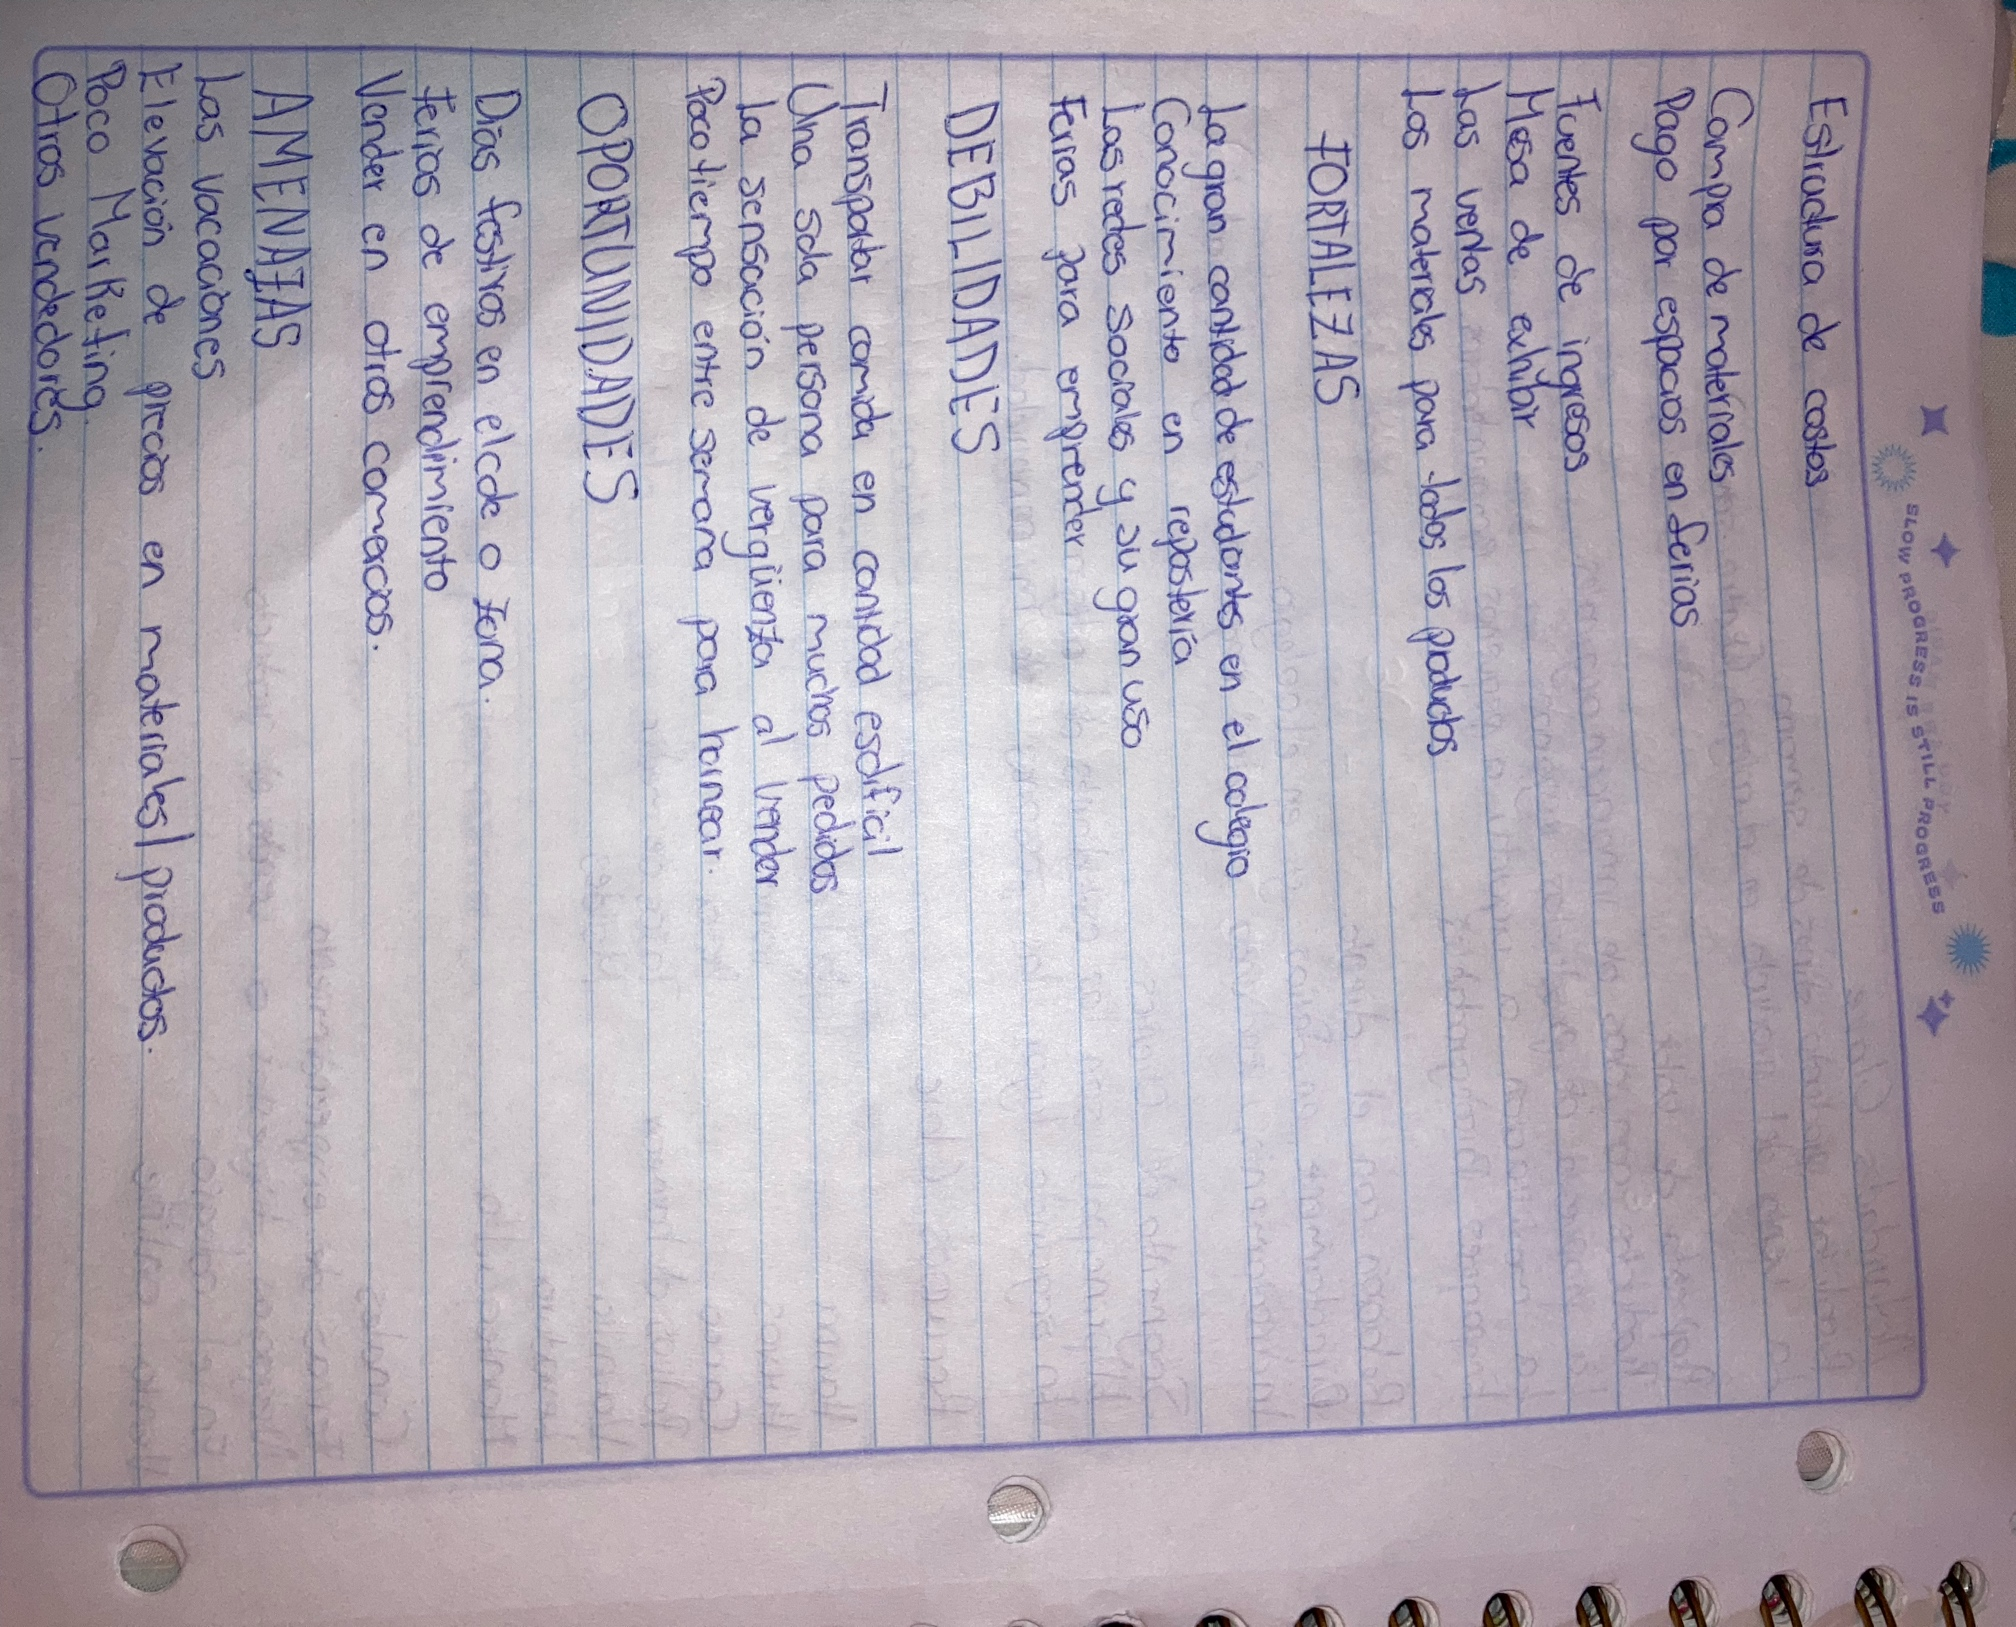 SLOW PROGRESS IS STILL PROGRESS
Estructura de costos
Compra de materiales
Pago por espacios en ferias
Fuentes de ingresos
Mesa de exhibir
Las ventas
Los materiales para todos los productos
FORTALEZAS
La gran cantidad de estudiantes en el colegio
Conocimiento en repostería
Las redes sociales y su gran uso
Ferias para emprender
DEBILIDADES
Transportar comida en cantidad es dificil
Una sola persona para muchos pedidos
La sensación de vergüenza al vender
Poco tiempo entre semana para hornear.
OPORTUNIDADES
Días festivos en el cole o zona.
Ferias de emprendimiento
Vender en otros comercios.
AMENAZAS
Las vacaciones
Elevación de precios en materiales/productos.
Poco Marketing.
Otros vendedores.